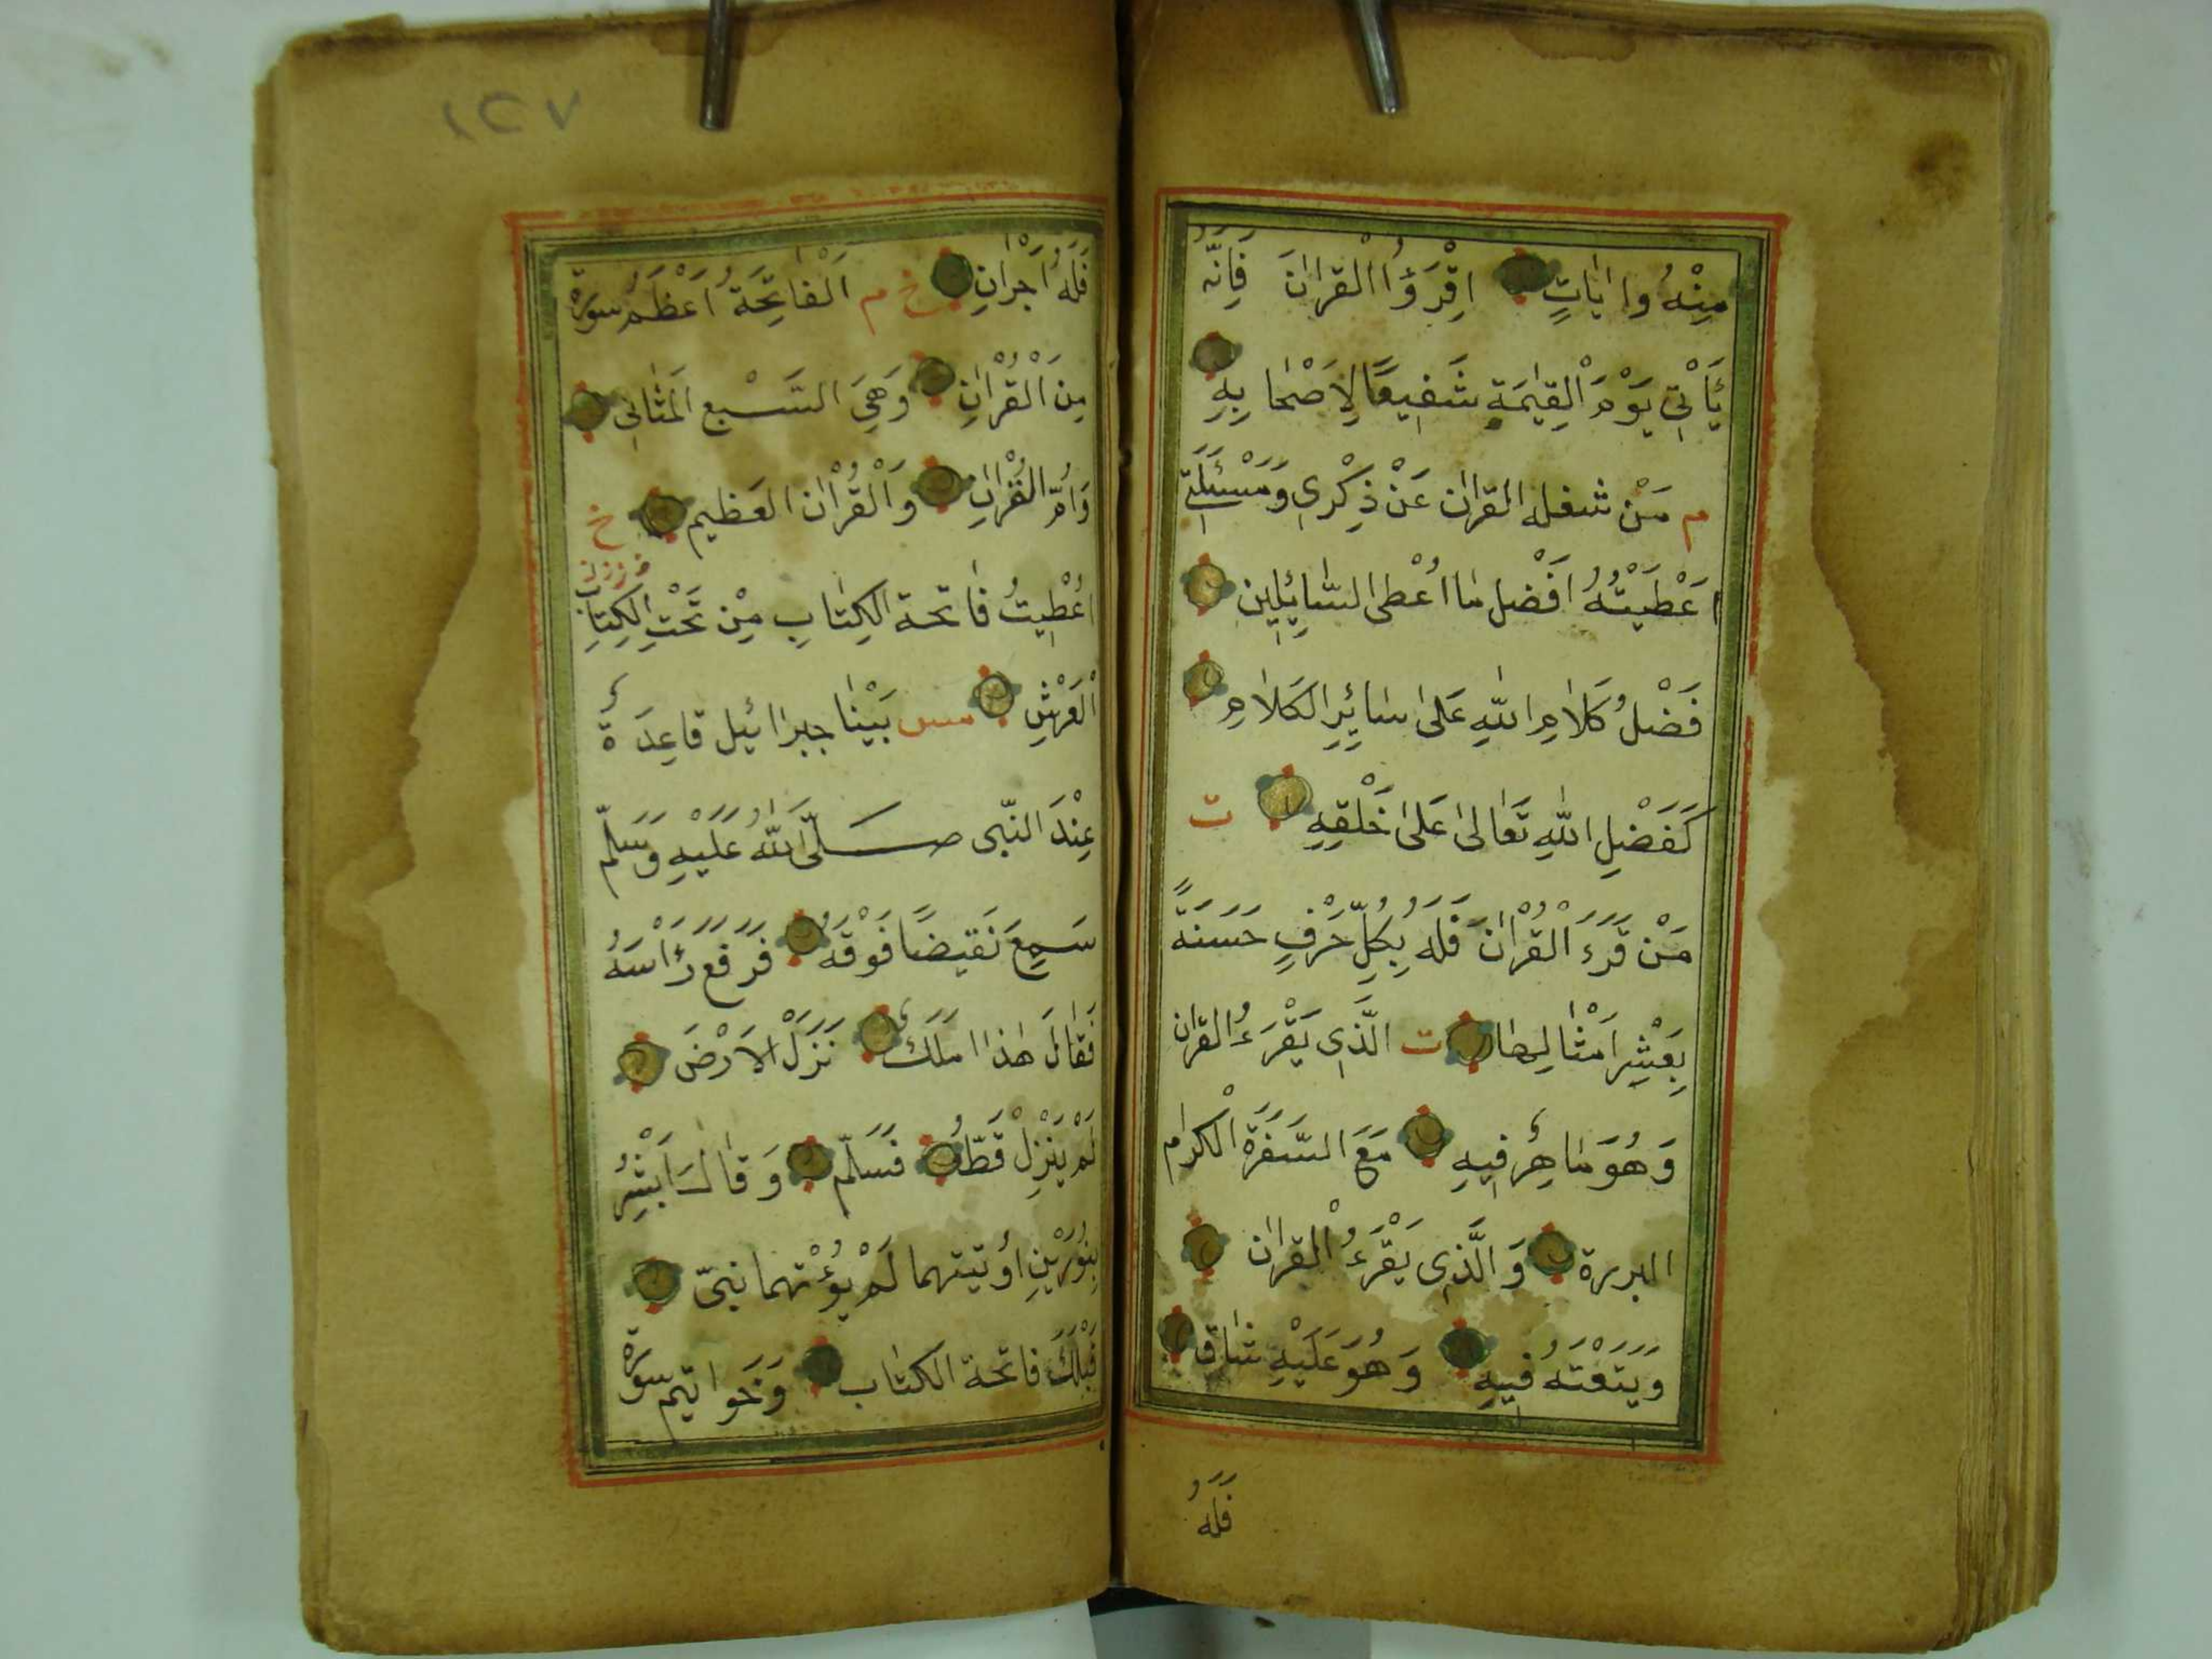 مِنْهُ واٰيَاتٍ اِقْرَؤُا الْقراٰنَ فَاِنَّهُ
يَأْتِي يَوْمَ الْقِيٰمَةِ شَفِيعًا لِاَصْحَابِهِ
م مَنْ شغله القراٰن عَنْ ذِكْرِي وَمَسْئَلَتِي
اَعْطَيْتُهُ اَفْضل ما اُعْطى السَّائِلِين
فَضْلُ كَلَامِ اللّٰهِ عَلىٰ سائِرِ الكَلَامِ
كَفَضْلِ اللّٰهِ تَعالىٰ عَلىٰ خَلْقِهِ ت
مَنْ قَرَءَ الْقُرْاٰنَ فَلَهُ بِكُلِّ حَرْفٍ حَسَنَةً
بِعَشْرِ اَمْثَالِهَا ت الَّذِى يَقْرَءُ القران
وَهُوَ مَاهِرٌ فِيهِ مَعَ السَّفَرَةِ الْكرام
البررة وَالَّذِى يَقْرَءُ الْقراٰن
وَيَتَعْتَهُ فِيهِ وَهُوَ عَلَيْهِ شَاقٌّ
فَلَهُ
١٢٧
فَلَهُ اَجْرَانِ خ م اَلْفَاتِحَةُ اَعْظَمُ سورة
مِنَ الْقُرْاٰنِ وَهِيَ السَّبْع المَثَانِي
وَاُمُّ القُرْاٰنِ وَالْقُرْاٰن العَظِيم خ
اُعْطِيتُ فاتحة الكِتَابِ مِنْ تَحْتِ الكِتَابِ
الْعَرْشِ مس بَيْنا جبرائيل قاعِدَةٌ
عِنْدَ النّبى صَلَّى اللّٰهُ عَلَيْهِ وَسَلّم
سَمِعَ نَقِيضًا فَوْقَهُ فَرَفَعَ رَأْسَهُ
فَقَالَ هٰذا مَلَكٌ نَزَلَ الاَرْضَ
لَمْ يَنْزِلْ قَطُّ فَسَلَّم وَقالَ اَبْشِرْ
بِنُورَيْنِ اُوتيتهما لَمْ يُؤْتهما نَبىّ
قَبْلَكَ فاتحة الكتاب وَخَواتيم سورة